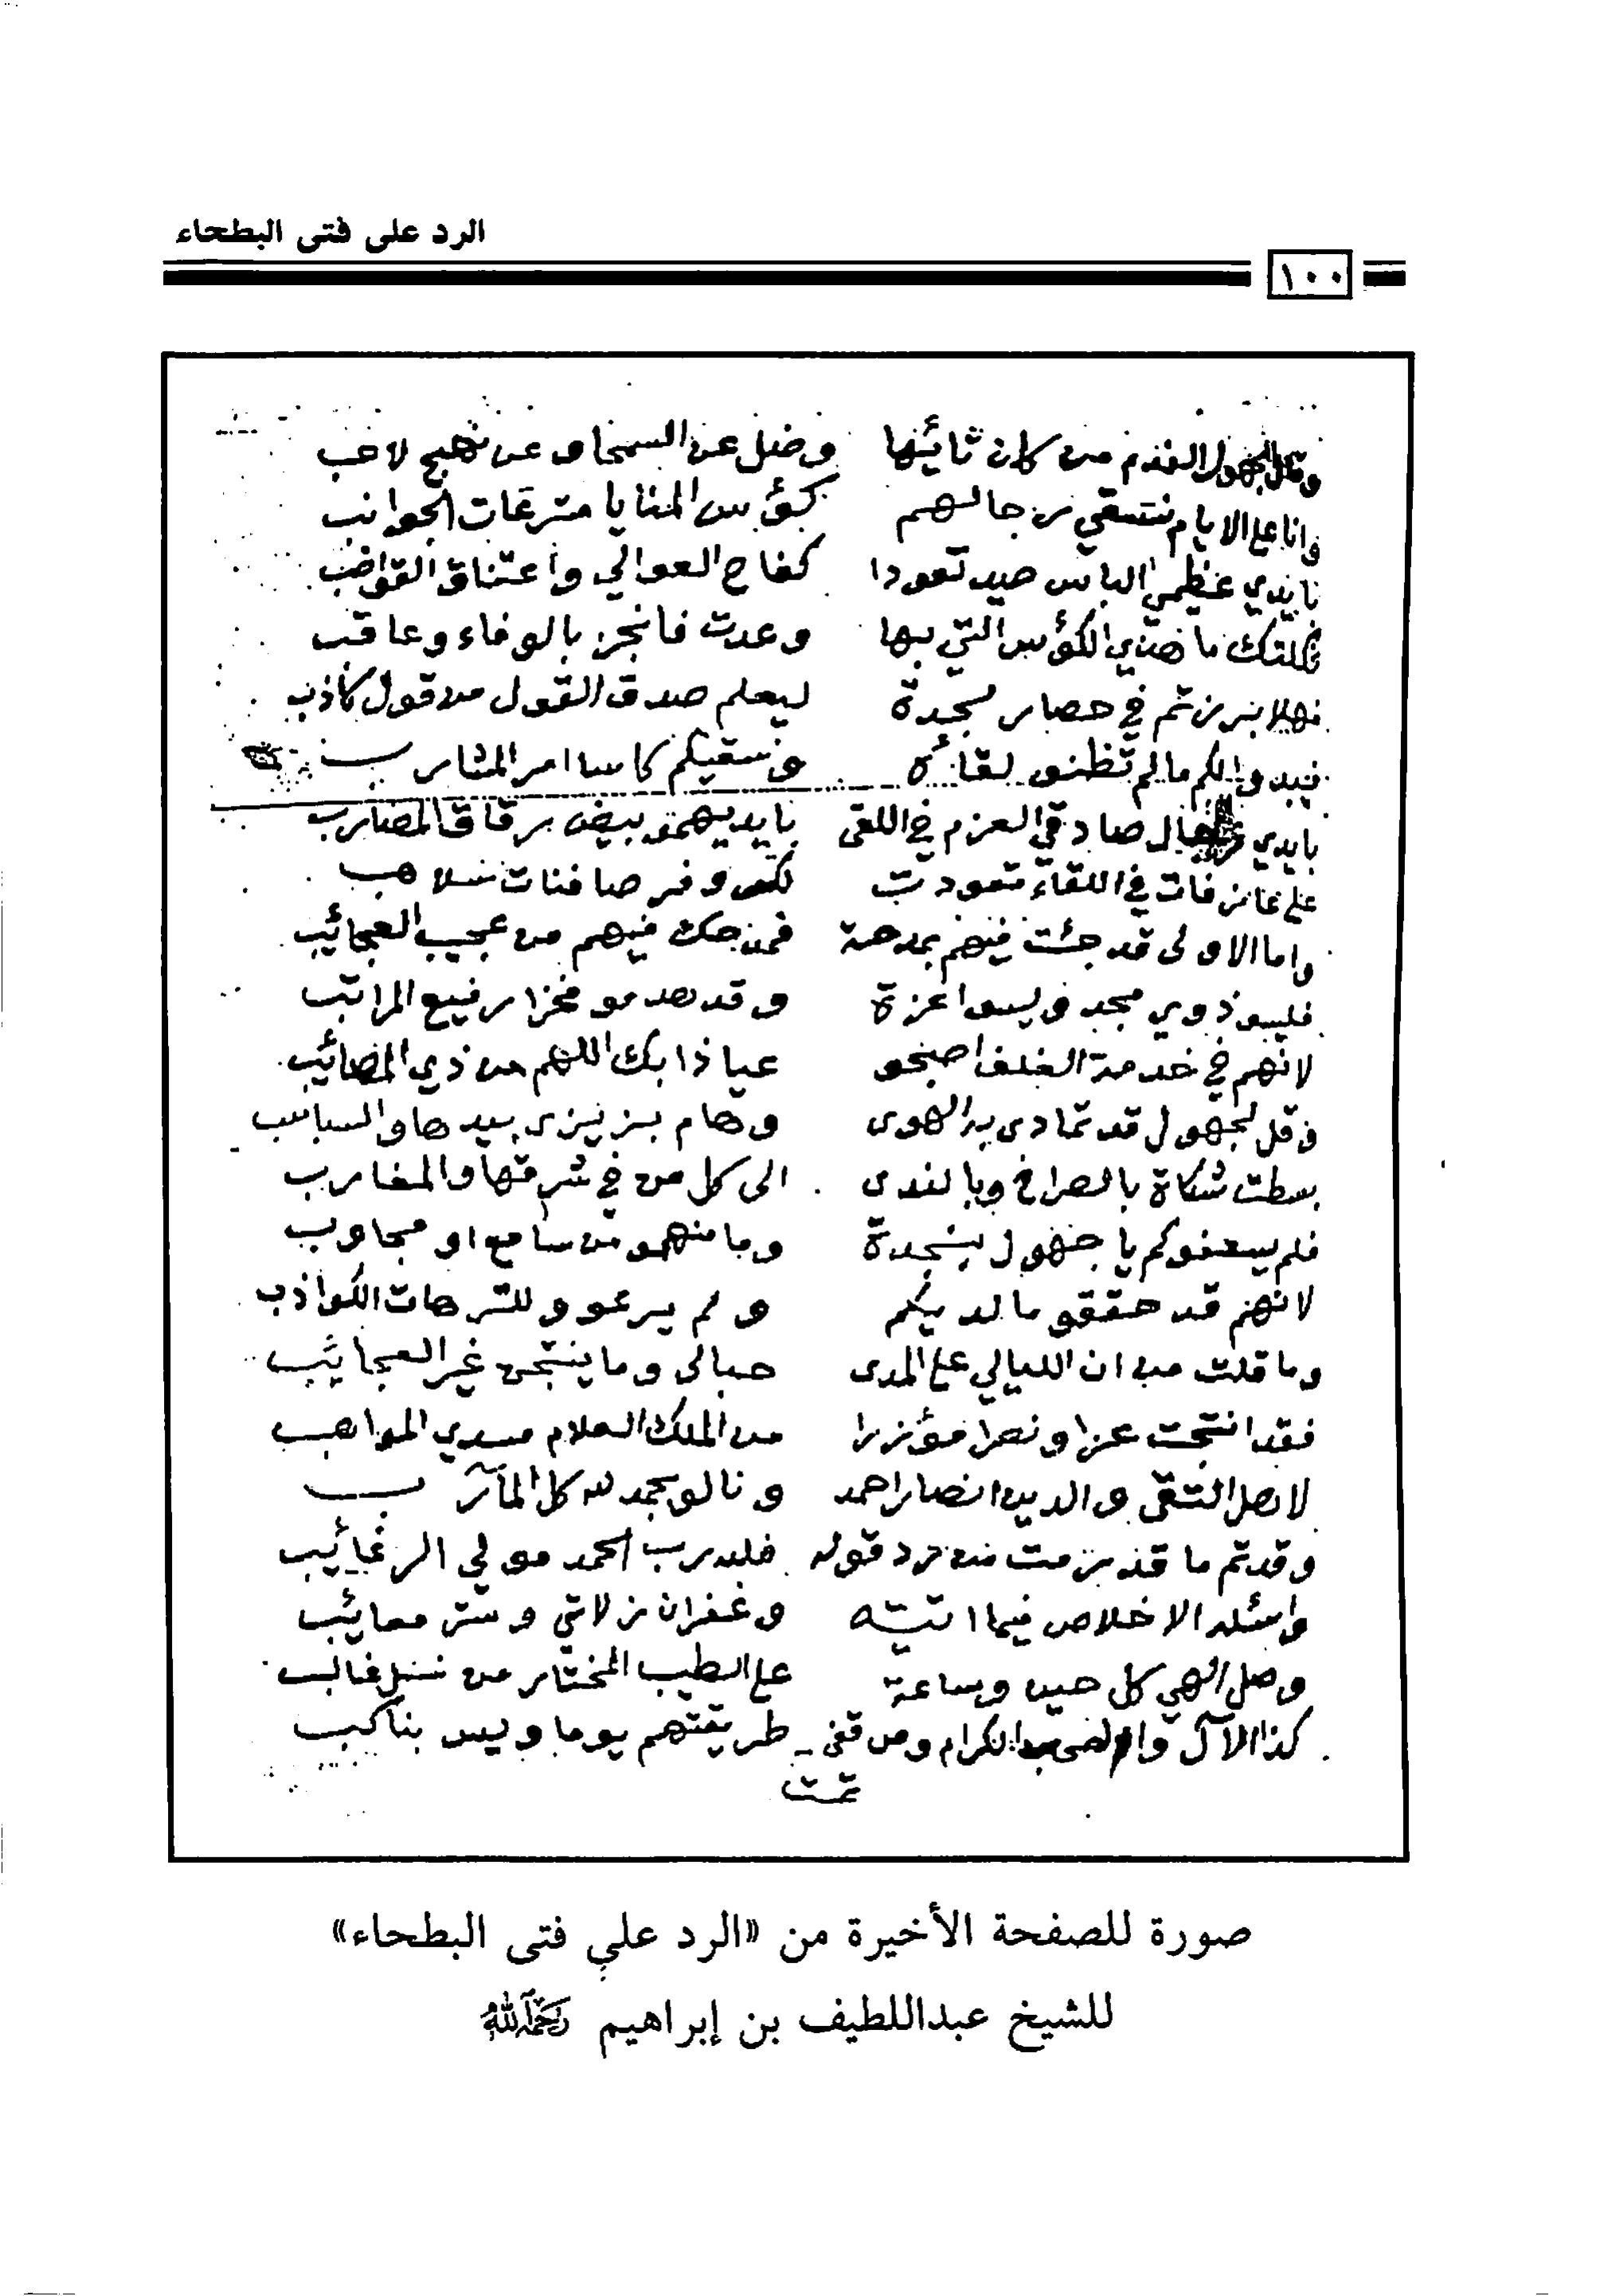 الرد على فتى البطحاء
١٠٠
الفدم من كان تائها وضل عن السمحاء عن نهج لاحب
وانا على الايام نستقي رجالهم كؤس المنايا مترعات الجوانب
بايدي عظيمي الباس صيد تعودا كفاح العوالي واعتناق القواضب
ثكلتك ما هذي الكؤس التي بها وعدت فانجز بالوفاء وعاقب
فهلا برزتم في حصار لجدة ليعلم صدق القول من قول كاذب
فيبدو لكم ما لم تظنو لقائه ونسقيكم كاسا امر المشارب
بايدي رجال صادقي العزم في اللقى بايديهمو بيض رقاق المضارب
على عازفات في اللقاء تعودت لكر وفر صافنات سلاهب
واما الاولى قد جئت فيهم بمدحة فمزحك فيهم من عجيب العجائب
فليسو ذوي مجد وليسوا اعزة وقد هدمو فخرا رفيع المراتب
لانهم في خدمة الغلف اصبحو عياذا بك اللهم من ذي المصائب
وقل لجهول قد تمادى به الهوى وهام بزيزى بيدها والسباسب
بسطت شكاة بالصراخ وبالندى الى كل من في شرقها والمغارب
فلم يسعفوكم يا جهول بنجدة وما منهمو من سامع او مجاوب
لانهم قد حققو ما لديكم ولم يرعوو للترهات الكواذب
وما قلت من ان الليالي على المدى حبالى وما ينتجن غير العجايئب
فقد انتجت عزا ونصرا مؤزرا من الملك العلام مسدي المواهب
لاهل التقى والدين انصار احمد ونالو بحمد لله كل المآرب
وقد تم ما قد رمت من رد قوله فلله رب الحمد مولي الرغائيب
واسئله الاخلاص فيما اتيته وغفران زلاتي وستر معائب
وصل الهي كل حين وساعة على الطيب المختار من نسل غالب
كذا الآل والصحب الكرام ومن قفى طريقتهم يوما وليس بناكب
تمت
صورة للصفحة الأخيرة من «الرد على فتى البطحاء»
للشيخ عبداللطيف بن إبراهيم رحمه الله